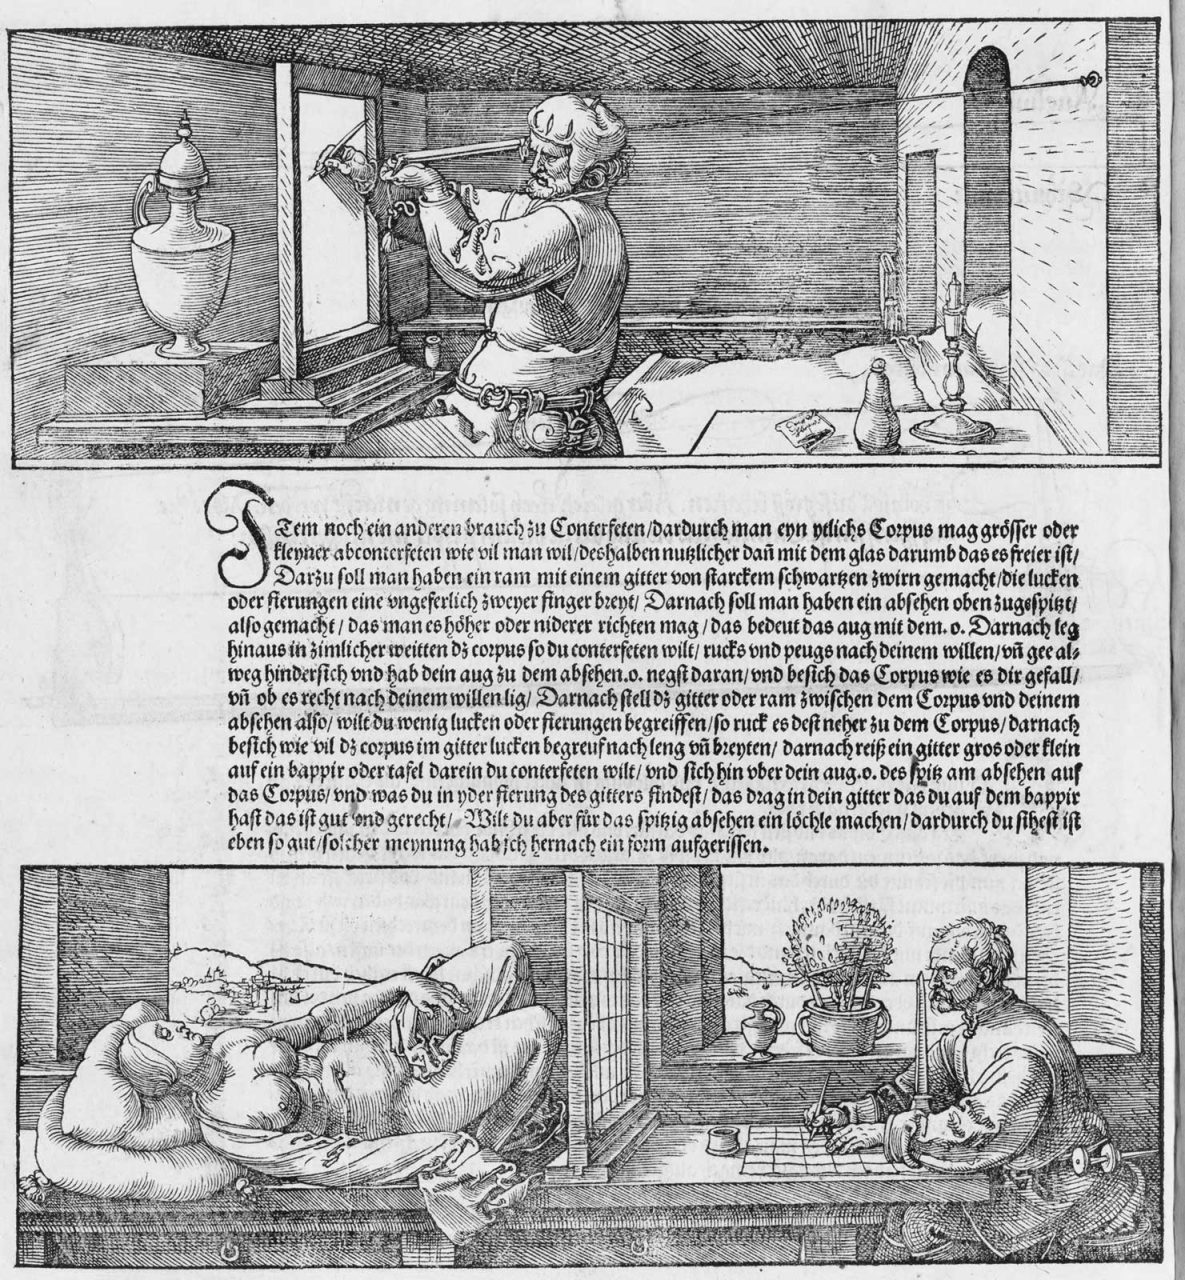 ITem noch ein anderen brauch zu Conterfeten/dardurch man eyn ytlichs Corpus mag grösser oder
kleyner abconterfeten wie vil man wil/deshalben nutzlicher dañ mit dem glas darumb das es freier ist/
Darzu soll man haben ein ram mit einem gitter von starckem schwartzen zwirn gemacht/die lucken
oder fierungen eine vngeferlich zweyer finger breyt/ Darnach soll man haben ein absehen oben zugespitzt/
also gemacht/ das man es höher oder niderer richten mag/das bedeut das aug mit dem .o. Darnach leg
hinaus in zimlicher weitten dz corpus so du conterfeten wilt/ rucks vnd peugs nach deinem willen/vñ gee al⸗
weg hindersich vnd hab dein aug zu dem absehen .o. negst daran/vnd besich das Corpus wie es dir gefall/
vñ ob es recht nach deinem willen lig/ Darnach stell dz gitter oder ram zwischen dem Corpus vnd deinem
absehen also/ wilt du wenig lucken oder fierungen begreiffen/so ruck es dest neher zu dem Corpus/darnach
besich wie vil dz corpus im gitter lucken begreuf nach leng vñ breyten/ darnach reiß ein gitter gros oder klein
auf ein bappir oder tafel darein du conterfeten wilt/ vnd sich hin vber dein aug .o. des spitz am absehen auf
das Corpus/ vnd was du in yder fierung des gitters findest/ das drag in dein gitter das du auf dem bappir
hast das ist gut vnd gerecht/ Wilt du aber für das spitzig absehen ein löchle machen/dardurch du sihest ist
eben so gut/solcher meynung hab ich hernach ein form aufgerissen.